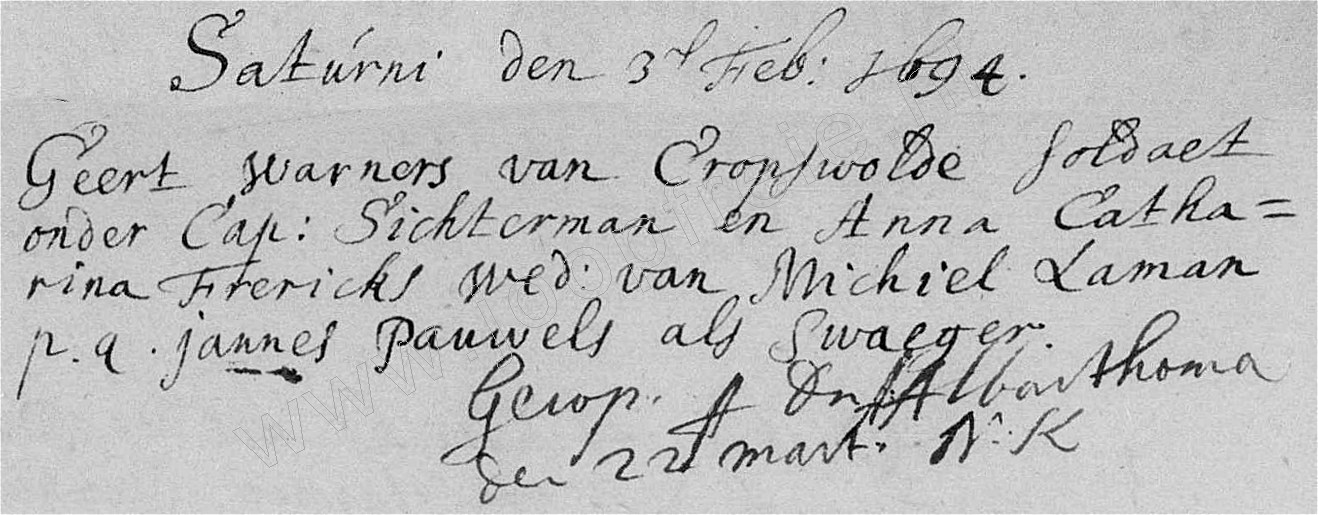 Saturni den 3d Feb: 1694.
Geert Warners van Cropswolde soldaet
onder Cap: Sichterman en Anna Catha=
rina Frericks wed: van Michiel Laman
p. q. jannes Pauwels als Swaeger.
Gecop. Albarthoma
den 22 mart. N. K